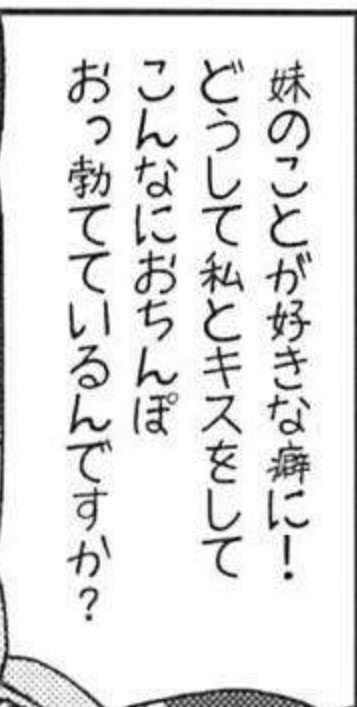 妹のことが好きな癖に！
どうして私とキスをして
こんなにおちんぽ
おっ勃てているんですか？